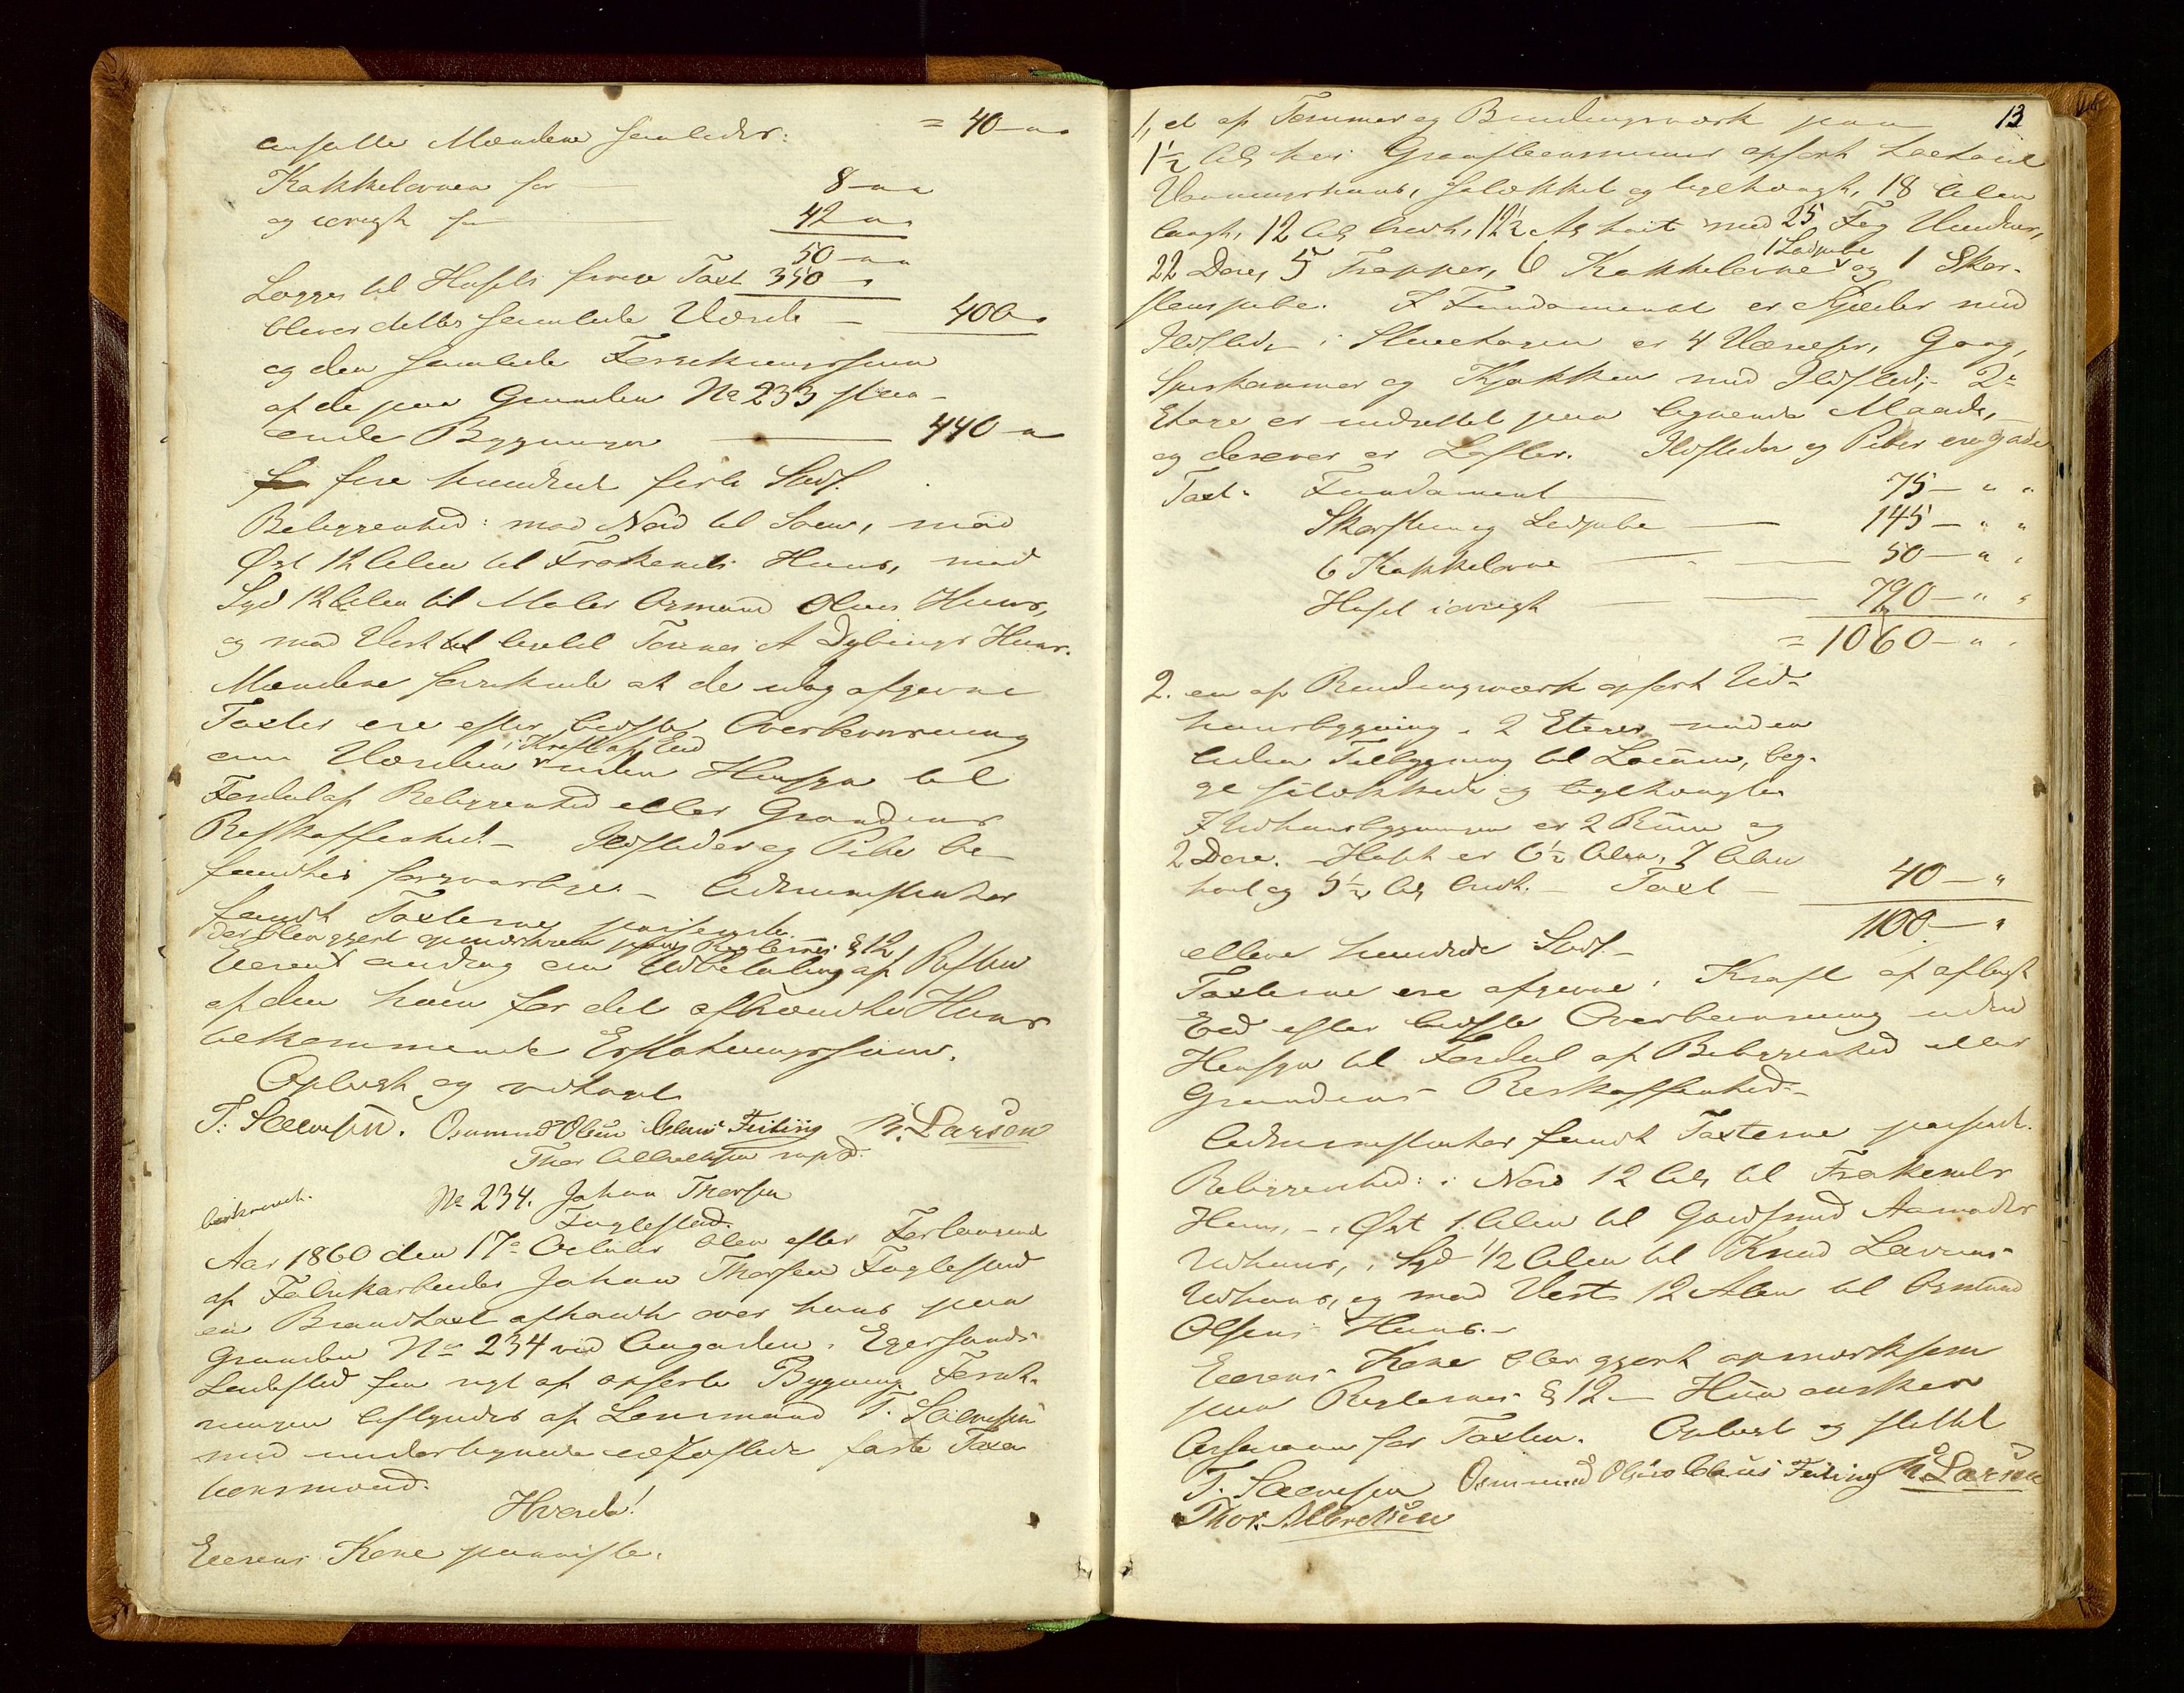 ansatte Mændene saaledes: = 40 – " "
Kakkelovnen for — 8 – " "
og øvrigt for — 42 – " "
50 – " "
Lægges til Husets forrige Taxt 350 – "
bliver dettes samlede Værdi — 400 "
og den samlede Forsikringssum
af de paa Grunden No 233 staa-
ende Bygninger — 440 – "
fire hundrede firti Spd.
Beliggenhed: mod Nord til Søen, mod
Øst 12 Alen til Huus, mod
Syd 12 Alen til Maler Osmund Olsens Huus,
og mod Vest til A Dybings Huus.
Mændene forsikrede at de idag afgivne
Taxter ere efter bedste Overbevisning
i Kraft af Eed
om Værdien uden Hensyn til
Fordel af Beliggenhed eller Grundens
Beskaffenhed. – Ildsteder og Pibe be-
fandtes forsvarlige. – Administrator
fandt Taxterne passende.
der blev gjort opmærksom paa Reglernes § 12
Eieren androg om Udbetaling af Resten
af den ham for det afbrændte Huus
tilkommende Erstatningssum.
Oplæst og vedtaget
T. Osmund Olsen Claus Feiling R. Larsen
Thor Albrethsen m.p.P.
beskrevet.
No 234. Johan Thorsen
Fuglestad.
Aar 1860 den 17de October blev efter Forlangende
af Fabrikarbeider Johan Thorsen Fuglestad
en Brandtaxt afholdt over hans paa
Grunden No 234 ved Aagaden i Egersunds
Ladested for nyt af opførte Bygning. Forret-
ningen bestyredes af Lensmand T.
med undertegnede edfæstede faste Taxa
tionsmænd.
Hvorda!
Eierens Kone paaviste.
13
1, et af Tømmer og Bindingsværk paa
1½ Al. høi Graasteensmuur opført toetages
Vaaningshuus, panelet og teglhængt, 18 Alen
langt, 12 Al. bredt, 12½ Al. høit med 25 Fag Vinduer,
1 Ledpibe
22 Døre, 5 Trapper, 6 Kakkelovne og 1 Skor-
stenspibe. I Fundamentet er Kjelder med
Ildsted, i Stueetagen er 4 Værelser, Gang,
Spiskammer og Kjøkken med Ildsted; 2den
Etage er indrettet paa lignende Maade,
og derover er Lofter. Ildsteder og Piber ere gode
Taxt. Fundament — 75 – " "
Skorsteen og Ledpibe — 145 – " "
6 Kakkelovne — 50 – " "
Huset iøvrigt — 790 – " "
= 1060 – " "
2. en af Bindingsværk opført Ud-
huusbygning i 2 Etager med en
liden Tilbygning til Locum, beg-
ge panelede og teglhængte
I Udhuusbygningen er 2 Rum og
2 Døre. – Huset er 6½ Alen, 7 Alen
høit og 5½ Al. bredt. – Taxt — 40 – "
1100 – "
elleve hundrede Spd. –
Taxterne ere afgivne i Kraft af aflagt
Eed efter bedste Overbevisning uden
Hensyn til Fordel af Beliggenhed eller
Grundens Beskaffenhed. –
Administrator fandt Taxterne passende.
Beliggenhed: i Nord 12 Al. til
Huus, – i Øst 1. Alen til Aamodts
Udhuus, i Syd 1/2 Alen til Knud
Udhuus, og mod Vest 12 Alen til Osmund
Olsens Huus. –
Eierens Kone blev gjort opmærksom
paa Reglernes § 12. – Hun ønsker
Assurance for Taxten. Oplæst og sluttet
T. Osmund Olsen Claus Feiling R. Larsen
Thor Albrethsen